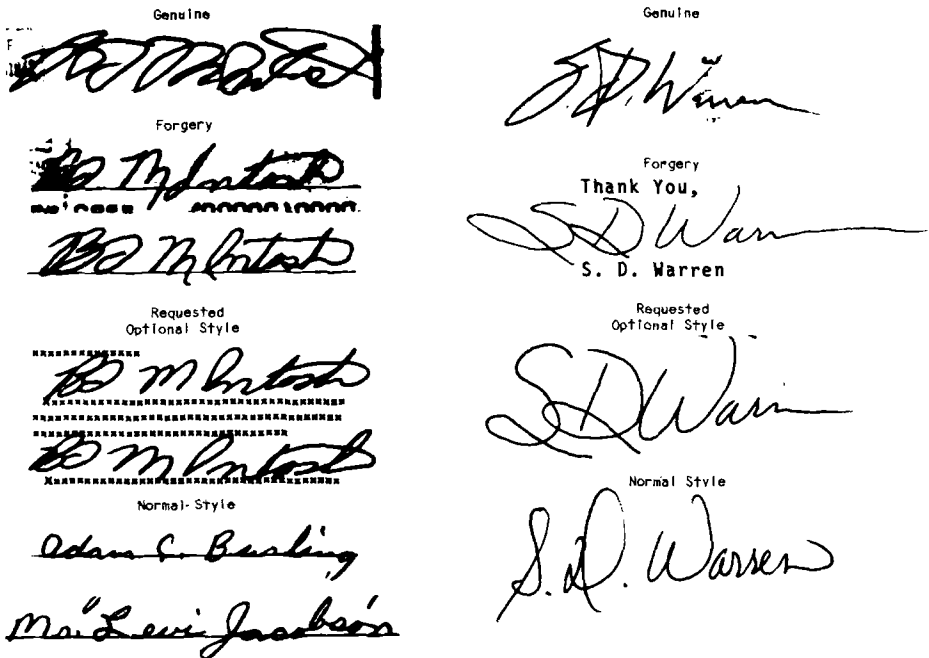 Genuine
BJ McIntosh
Forgery
BJ McIntosh
BJ McIntosh
Requested
Optional Style
BJ McIntosh
BJ McIntosh
Normal-Style
Adam C. Burling
Mr. Levi Jacobson
Genuine
S. D. Warren
Forgery
Thank You,
S D Warren
S. D. Warren
Requested
Optional Style
S D Warren
Normal Style
S. D. Warren